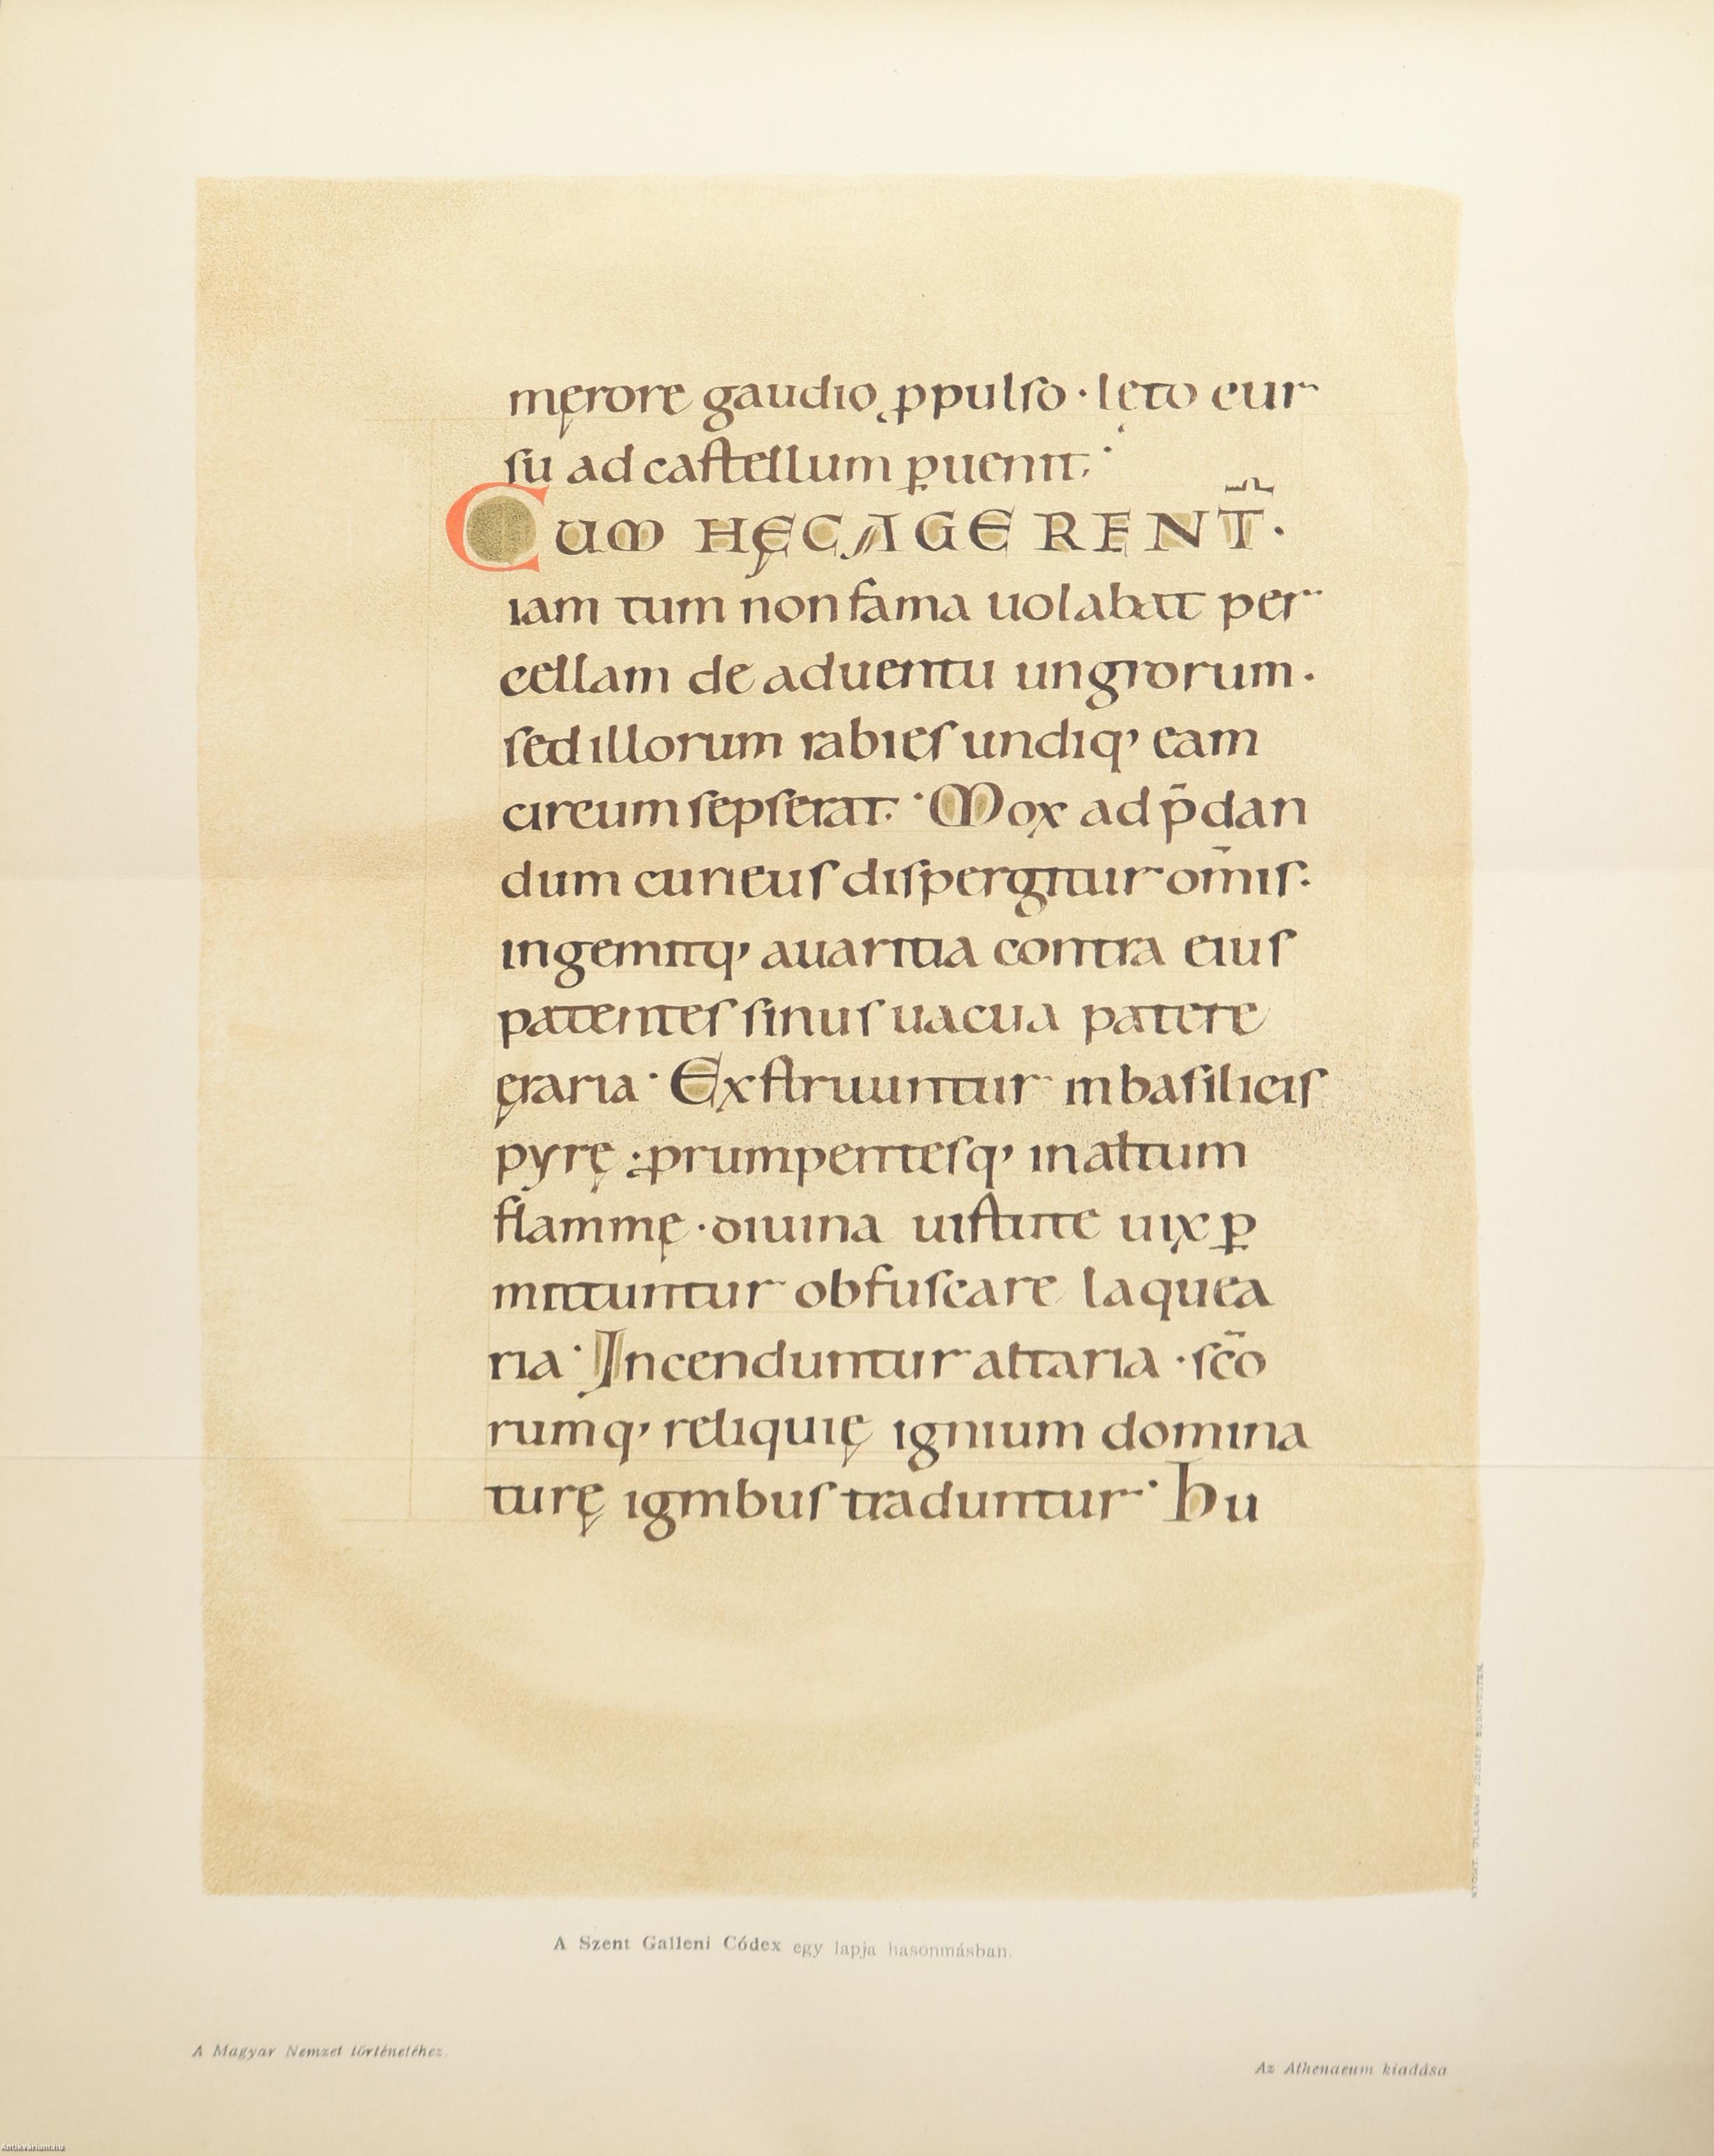 męrore gaudio ꝓpulso · lęto cur
su ad castellum ꝑuenit;
CUM HĘC AGERENT᷑.
iam tum non fama uolabat per
cellam de aduentu ungrorum.
sed illorum rabies undiq’ eam
circumsepserat. Mox ad p̄dan
dum cuneus dispergitur om̄is:
ingemitq’ auaritia contra eius
patentes sinus uacua patere
ęraria · Exstruuntur in basilicis
pyrę ꝓrumpentesq’ in altum
flammę · diuina uistute uix ꝑ
mittuntur obfuscare laquea
ria · Incenduntur altaria · sc̄o
rumq’ reliquię ignium domina
turę ignibus traduntur · hu
NYOMT. ULLMANN JÓZSEF BUDAPESTEN.
A Szent Galleni Códex egy lapja hasonmásban.
A Magyar Nemzet történetéhez.
Az Athenaeum kiadása
Antikvarium.hu